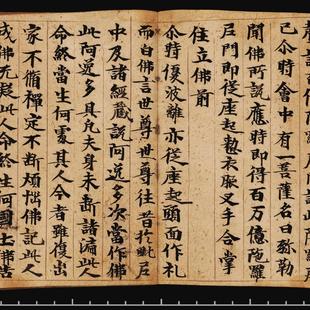 已尒時會中有一菩薩名曰弥勒
聞佛所說應時即得百万億陁羅
尼門即從座起整衣服叉手合掌
住立佛前
尒時優波離亦從座起頭面作礼
而白佛言世尊世尊往昔於毗尼
中及諸經藏說阿逸多次當作佛
此阿逸多具凡夫身未斷諸漏此人
命終當生何處其人今者雖復出
家不脩禪定不斷煩惱佛記此人
成佛无疑此人命終生何國土佛告